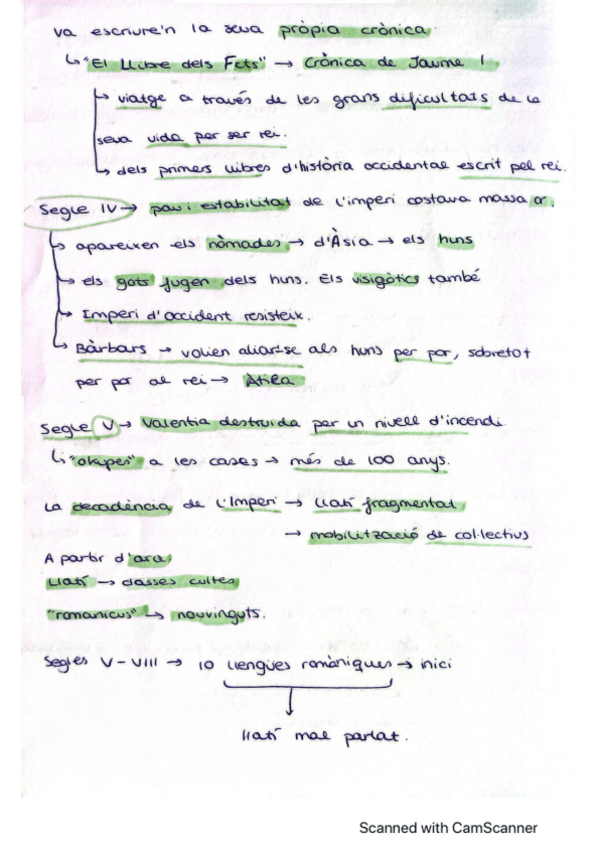 va escriure'n la seva pròpia crònica.
↳ "El Llibre dels Fets" → Crònica de Jaume I.
↳ viatge a través de les grans dificultats de la
seva vida per ser rei.
↳ dels primers llibres d'història occidental escrit pel rei.
Segle IV → pau i estabilitat de l'imperi costava massa or.
↳ apareixen els nòmades → d'Àsia → els huns
↳ els gots fugen dels huns. Els visigòtics també
↳ Imperi d'accident resisteix.
↳ Bàrbars → volien aliar-se als huns per por, sobretot
per por al rei → Àtila
Segle V → Valentia destruida per un nivell d'incendi.
↳ "okupes" a les cases → més de 100 anys.
La decadència de l'Imperi → llatí fragmentat
→ mobilització de col·lectius
A partir d'ara
Llatí → classes cultes
"romanicus" → nouvinguts.
Segles V-VIII → 10 llengües romàniques → inici
llatí mal parlat.
Scanned with CamScanner